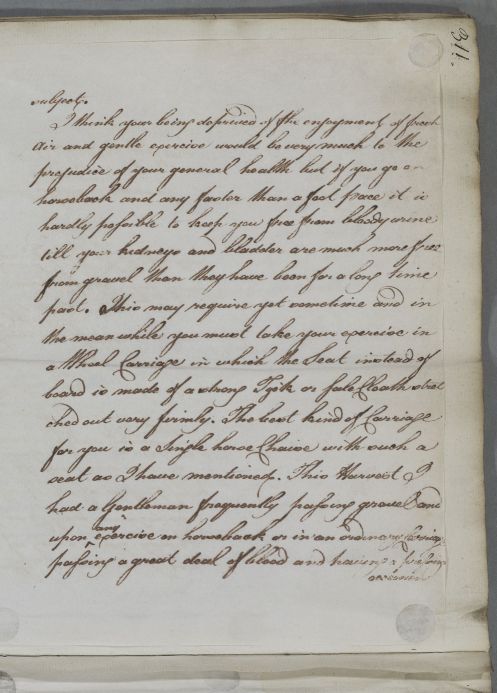 311.
subject.
I think your being deprived of the enjoyment of fresh
Air and gentle exercise would be very much to the
prejudice of your general health but if you go on
horseback and any faster than a foot pace it is
hardly possible to keep you free from bloody urine
till your kidneys and bladder are much more free
from gravel than they have been for a long time
past. This may require yet sometime and in
the mean while you must take your exercise in
a Wheel Carriage in which the Seat instead of
board is made of a strong Tyck or sale Cloath stret
ched out very firmly. The best kind of Carriage
for you is a Single horse Chaise with such a
seat as I have mentioned. This Harvest I
had a Gentleman frequently passing gravel and
upon any exercise on horseback or in an ordinary
passing a great deal of blood and having a